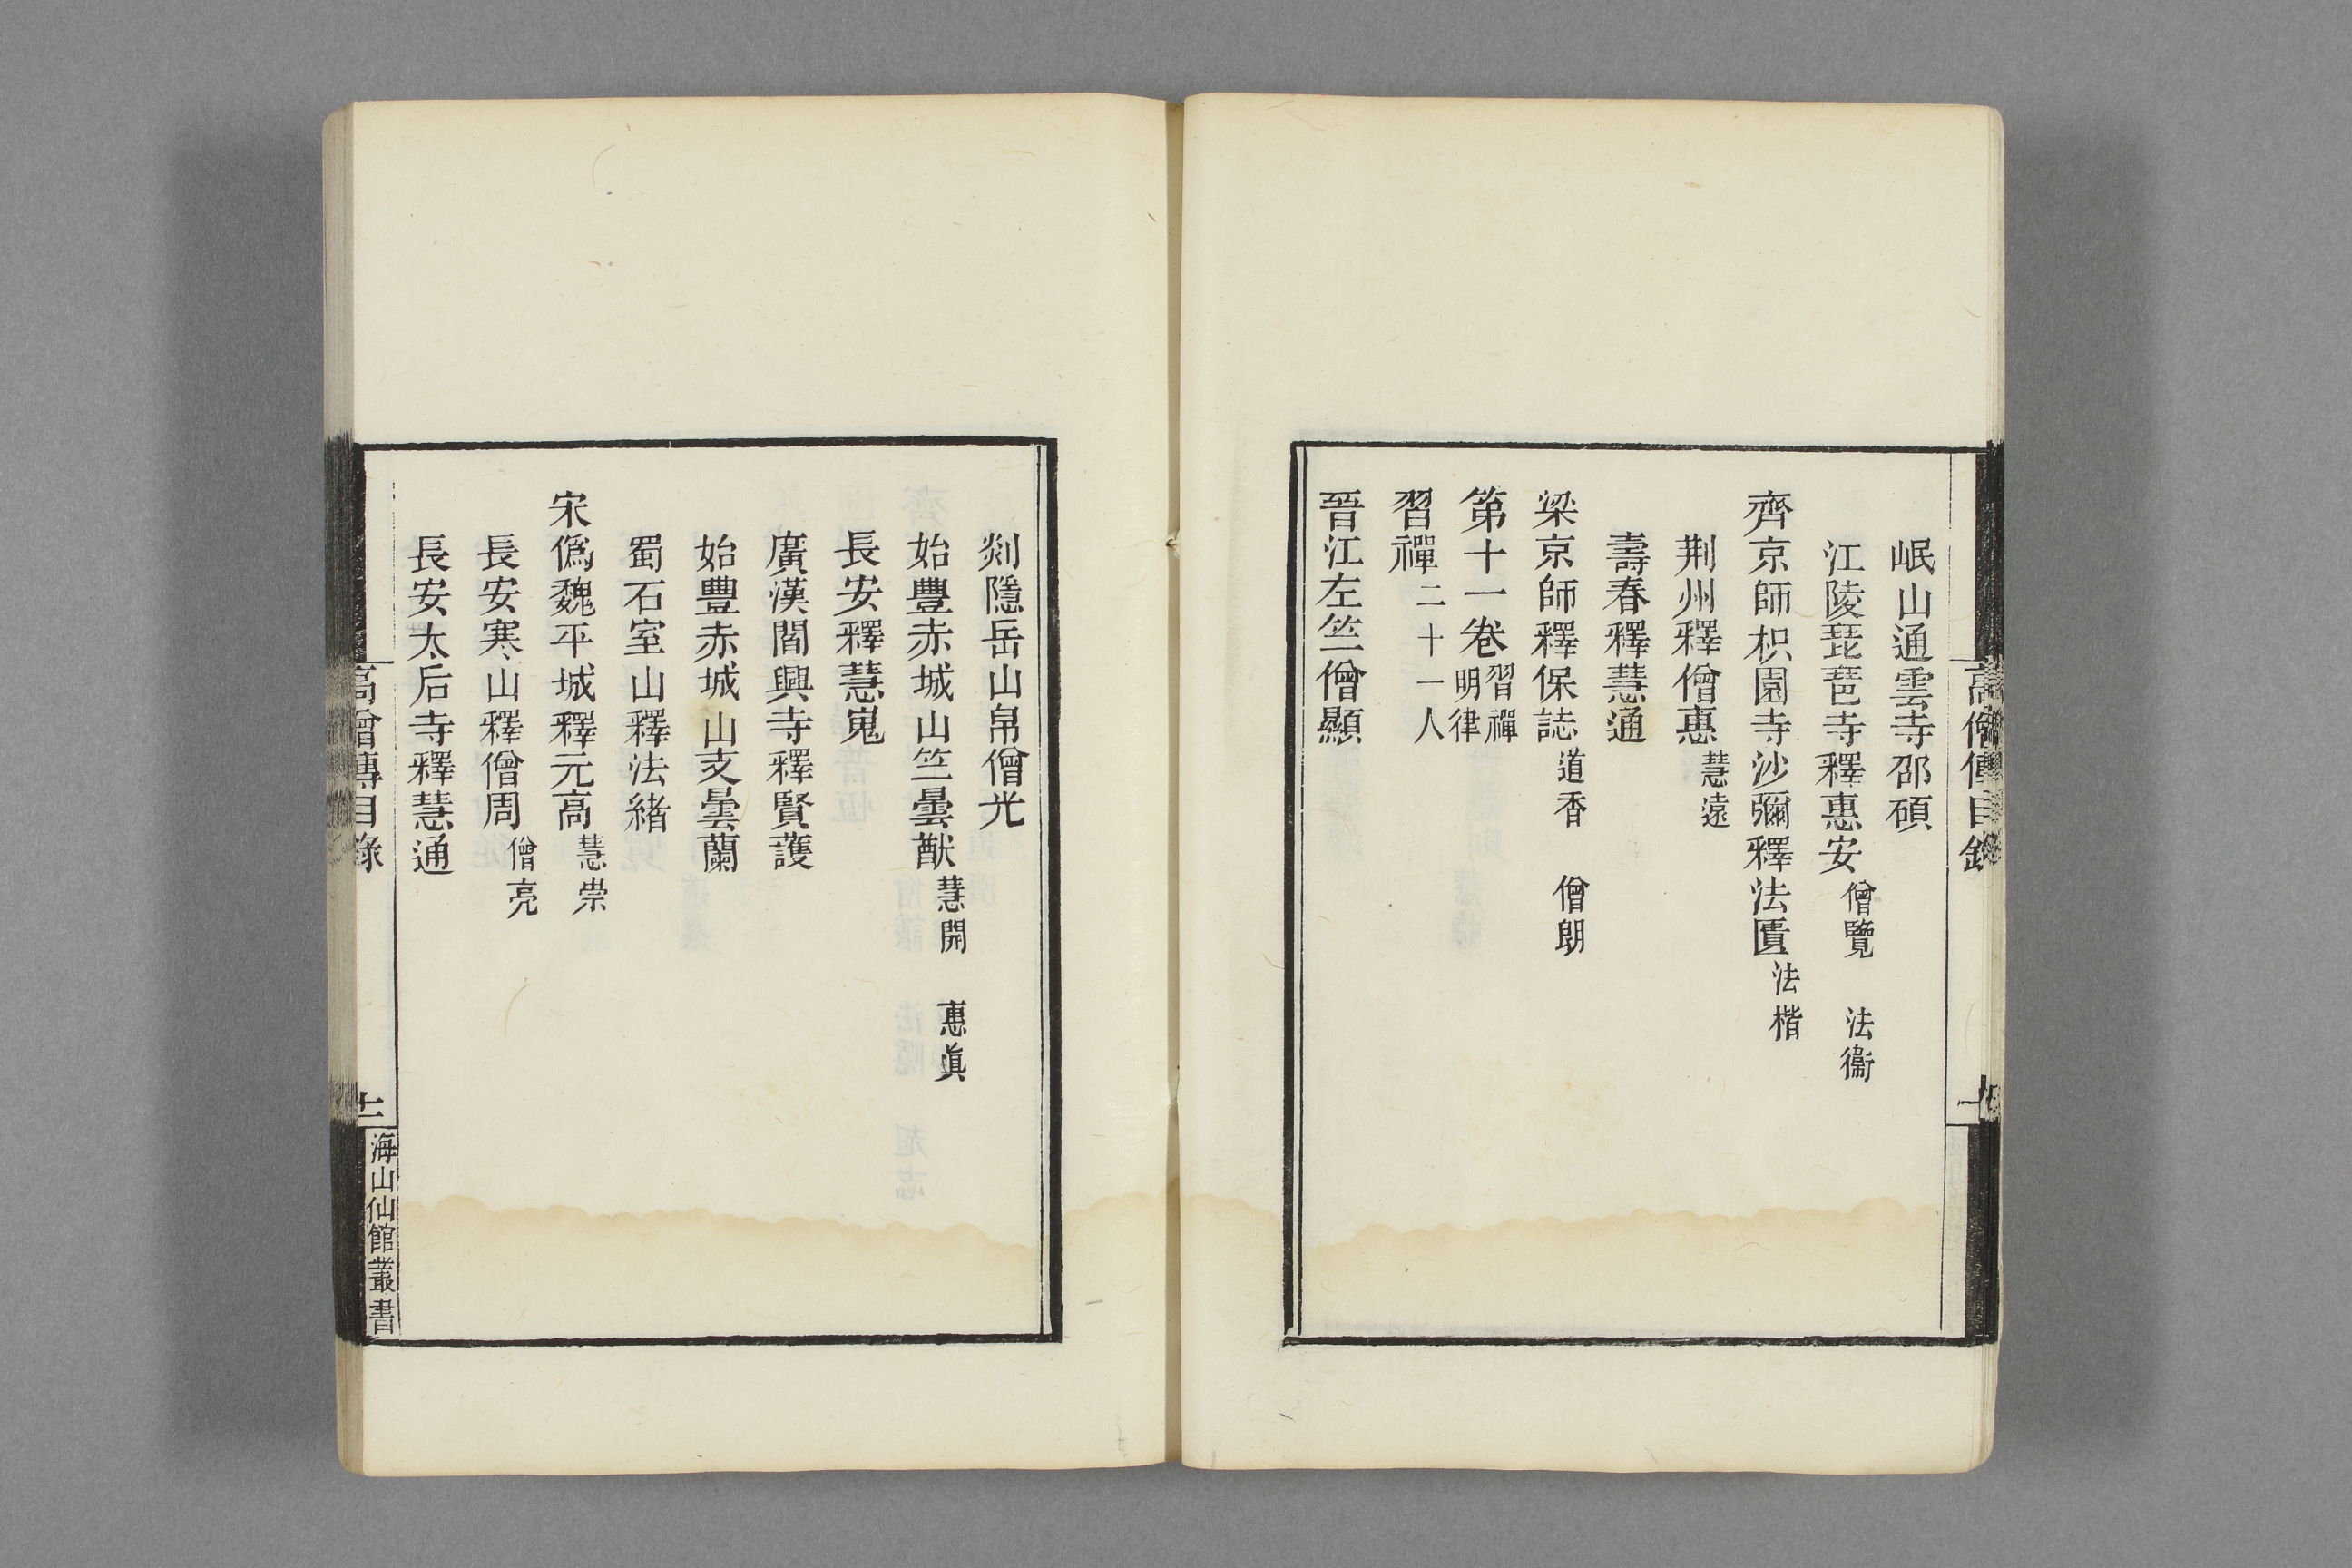 高僧傳目錄
岷山通雲寺邵碩
江陵琵琶寺釋惠安 僧覽 法衞
齊京師枳園寺沙彌釋法匱 法楷
荆州釋僧惠 慧遠
壽春釋慧通
梁京師釋保誌 道香 僧朗
第十一卷 習禪 明律
習禪 二十一人
晉江左竺僧顯
剡隱岳山帛僧光
始豐赤城山竺曇猷 慧開 惠眞
長安釋慧嵬
廣漢閻興寺釋賢護
始豐赤城山支曇蘭
蜀石室山釋法緒
宋僞魏平城釋元高 慧崇
長安寒山釋僧周 僧亮
長安太后寺釋慧通
高僧傳目錄
十二
海山仙館叢書